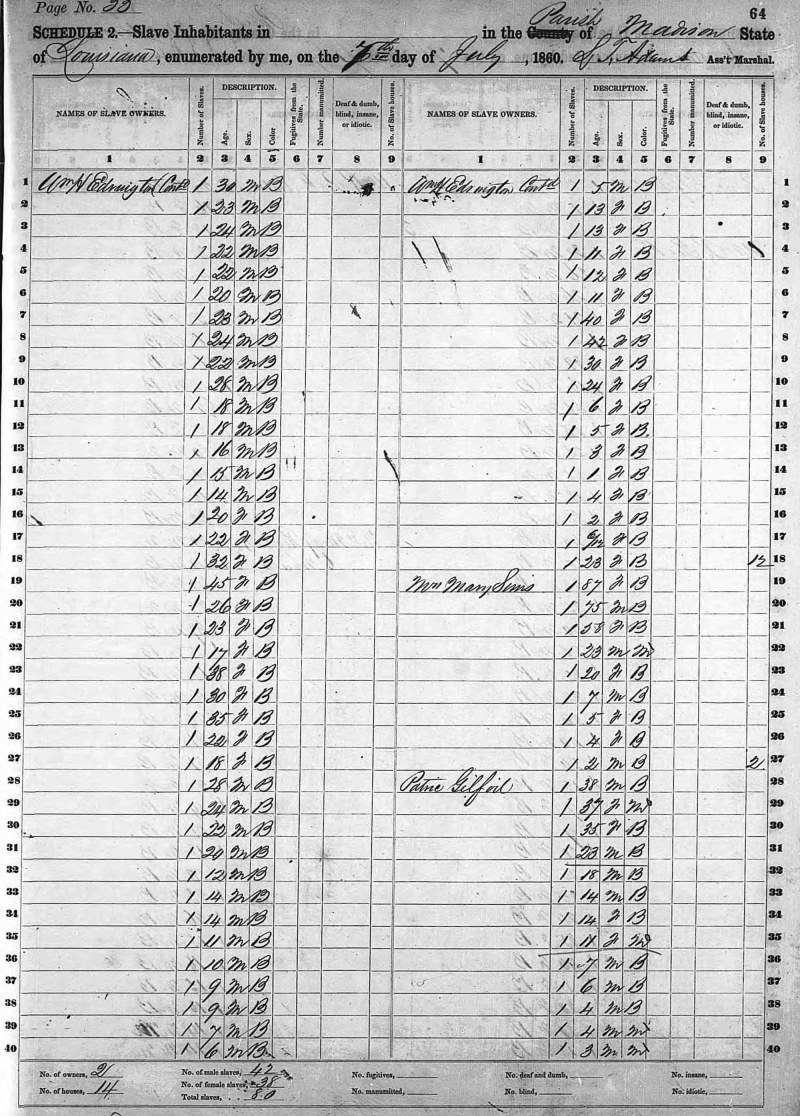 Page No. 33
64
SCHEDULE 2.—Slave Inhabitants in in the County Parish of Madison State
of Louisiana, enumerated by me, on the 7th day of July, 1860. Adams Ass't Marshal.
NAMES OF SLAVE OWNERS. Number of Slaves. DESCRIPTION. Age. Sex. Color Fugitives from the State. Number manumitted. Deaf & dumb, blind, insane, or idiotic. No. of Slave houses. NAMES OF SLAVE OWNERS. Number of Slaves. DESCRIPTION. Age. Sex. Color. Fugitives from the State. Number manumitted. Deaf & dumb, blind, insane, or idiotic. No. of Slave houses.
1 2 3 4 5 6 7 8 9 1 2 3 4 5 6 7 8 9
1 Wm H Edrington Cont'd 1 30 M B Wm H Edrington Cont'd 1 5 M B 1
2 1 23 M B 1 13 F B 2
3 1 24 M B 1 13 F B 3
4 1 22 M B 1 11 F B 4
5 1 22 M B 1 12 F B 5
6 1 20 M B 1 11 F B 6
7 1 23 M B 1 40 F B 7
8 1 24 M B 1 42 F B 8
9 1 22 M B 1 30 F B 9
10 1 28 M B 1 24 F B 10
11 1 18 M B 1 6 F B 11
12 1 18 M B 1 5 F B 12
13 1 16 M B 1 3 F B 13
14 1 15 M B 1 1 F B 14
15 1 14 M B 1 4 F B 15
16 1 20 F B 1 2 F B 16
17 1 22 F B 1 6/12 F B 17
18 1 32 F B 1 23 F B 12 18
19 1 45 F B Mrs Mary Sims 1 87 F B 19
20 1 26 F B 1 75 M B 20
21 1 23 F B 1 58 F B 21
22 1 17 F B 1 23 M M 22
23 1 38 F B 1 20 F B 23
24 1 30 F B 1 7 M B 24
25 1 35 F B 1 5 F B 25
26 1 22 F B 1 4 F B 26
27 1 18 F B 1 2 M B 2 27
28 1 28 M B Patric Gilfoil 1 38 M B 28
29 1 24 M B 1 37 F M 29
30 1 22 M B 1 35 F B 30
31 1 20 M B 1 23 M B 31
32 1 12 M B 1 18 M B 32
33 1 14 M B 1 14 M B 33
34 1 14 M B 1 14 F B 34
35 1 11 M B 1 11 F M 35
36 1 10 M B 1 7 M B 36
37 1 9 M B 1 6 M B 37
38 1 9 M B 1 4 M B 38
39 1 7 M B 1 4 M M 39
40 1 6 M B 1 3 M M 40
No. of owners, 2 No. of male slaves, 42 No. fugitives, No. deaf and dumb, No. insane,
No. of houses, 14 No. of female slaves, 38 No. manumitted, No. blind, No. idiotic,
Total slaves, 80